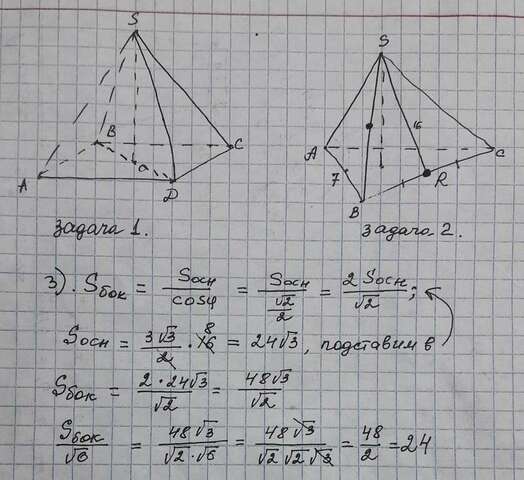 S
B
C
A
O
D
S
A
C
7
16
B
R
задача 1.
задача 2.
3). Sбок = Sосн / cosφ = Sосн / (√2/2) = 2 Sосн / √2 ;
Sосн = 3√3/2 · 16 8 = 24√3, подставим в
Sбок = 2 · 24√3 / √2 = 48√3 / √2
Sбок / √6 = 48√3 / √2 · √6 = 48√3 / √2 √2 √3 = 48/2 = 24